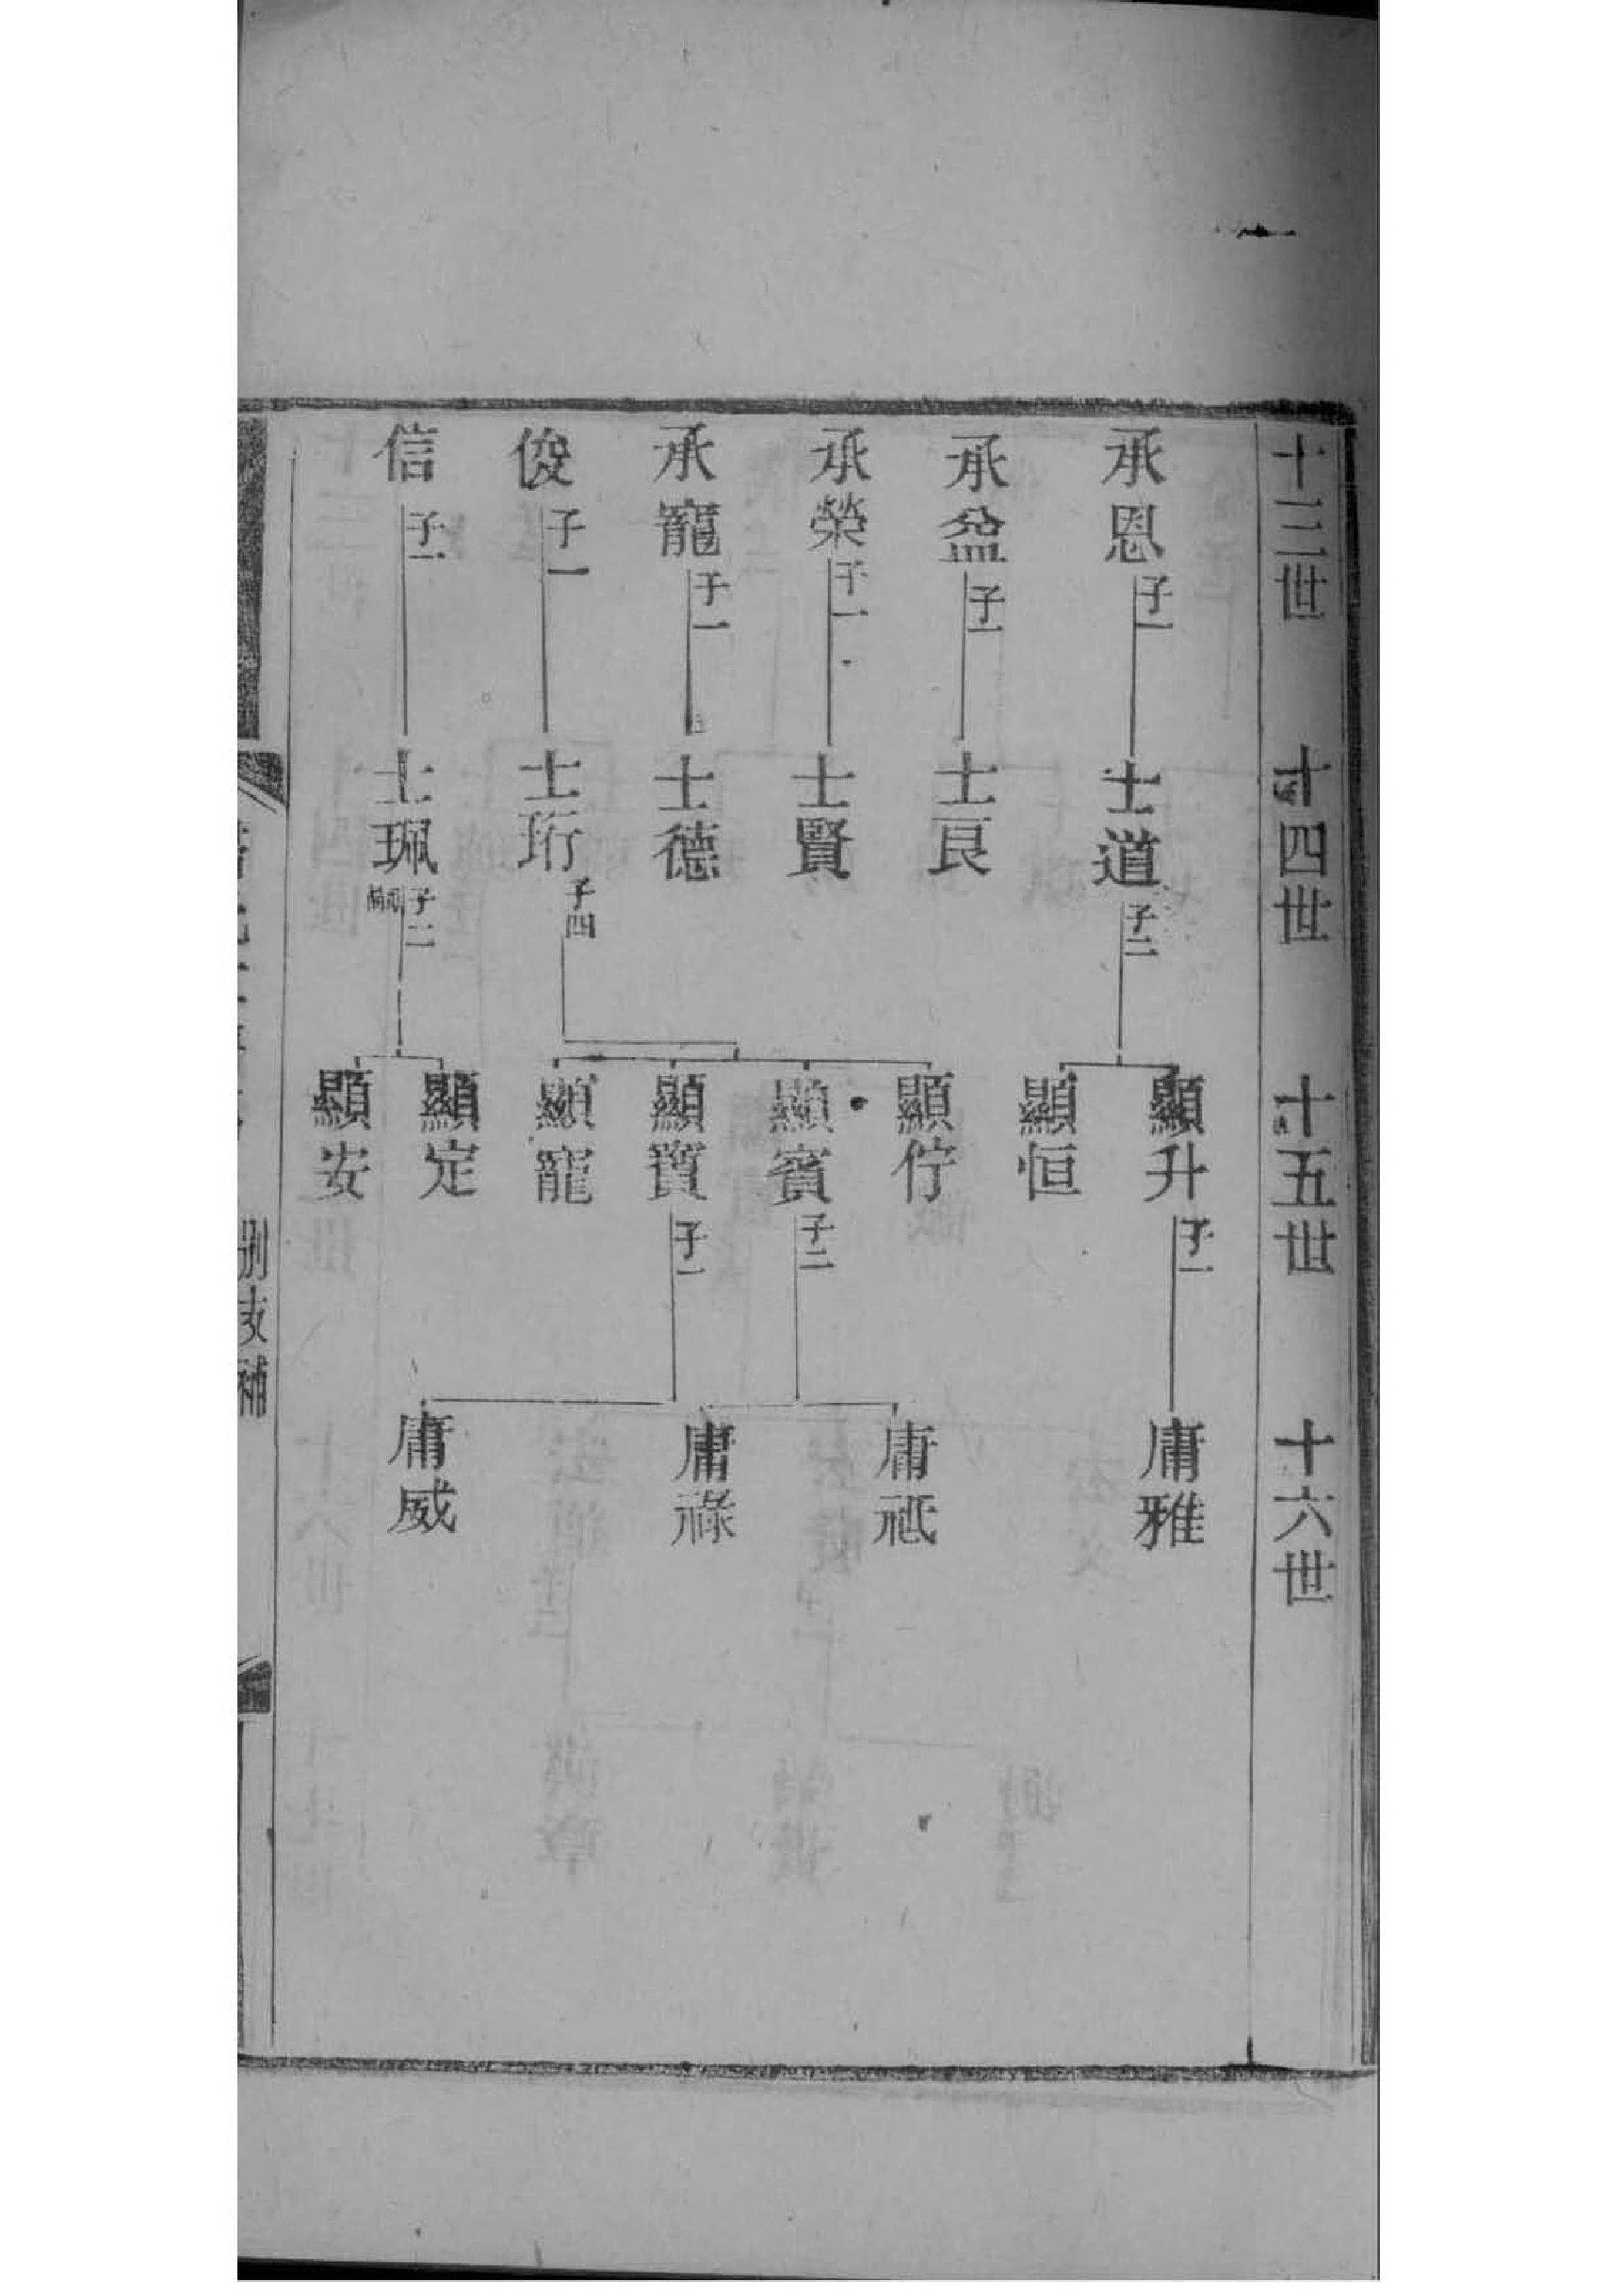 十三世 十四世 十五世 十六世
承恩 子一
士道 子二
顯升 子一
庸雅
顯恒
承盆 子一
士良
承榮 子一
士賢
承寵 子一
士德
俊 子一
士珩 子四
顯佇
顯賓 子二
庸祗
庸祿
顯寶 子一
庸威
顯寵
信 子一
士珮 子二
顯定
顯安
別支補